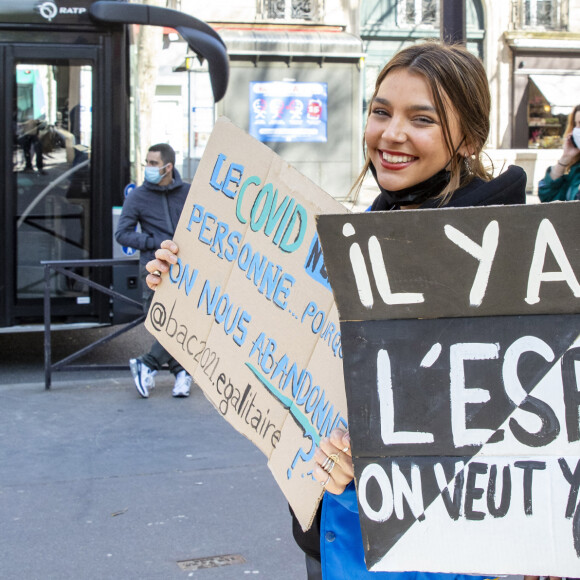 RATP
LE COVID N'
PERSONNE... POUR
ON NOUS ABANDONNE
?
@bac2021egalitaire
iL Y A
L'ESP
ON VEUT Y